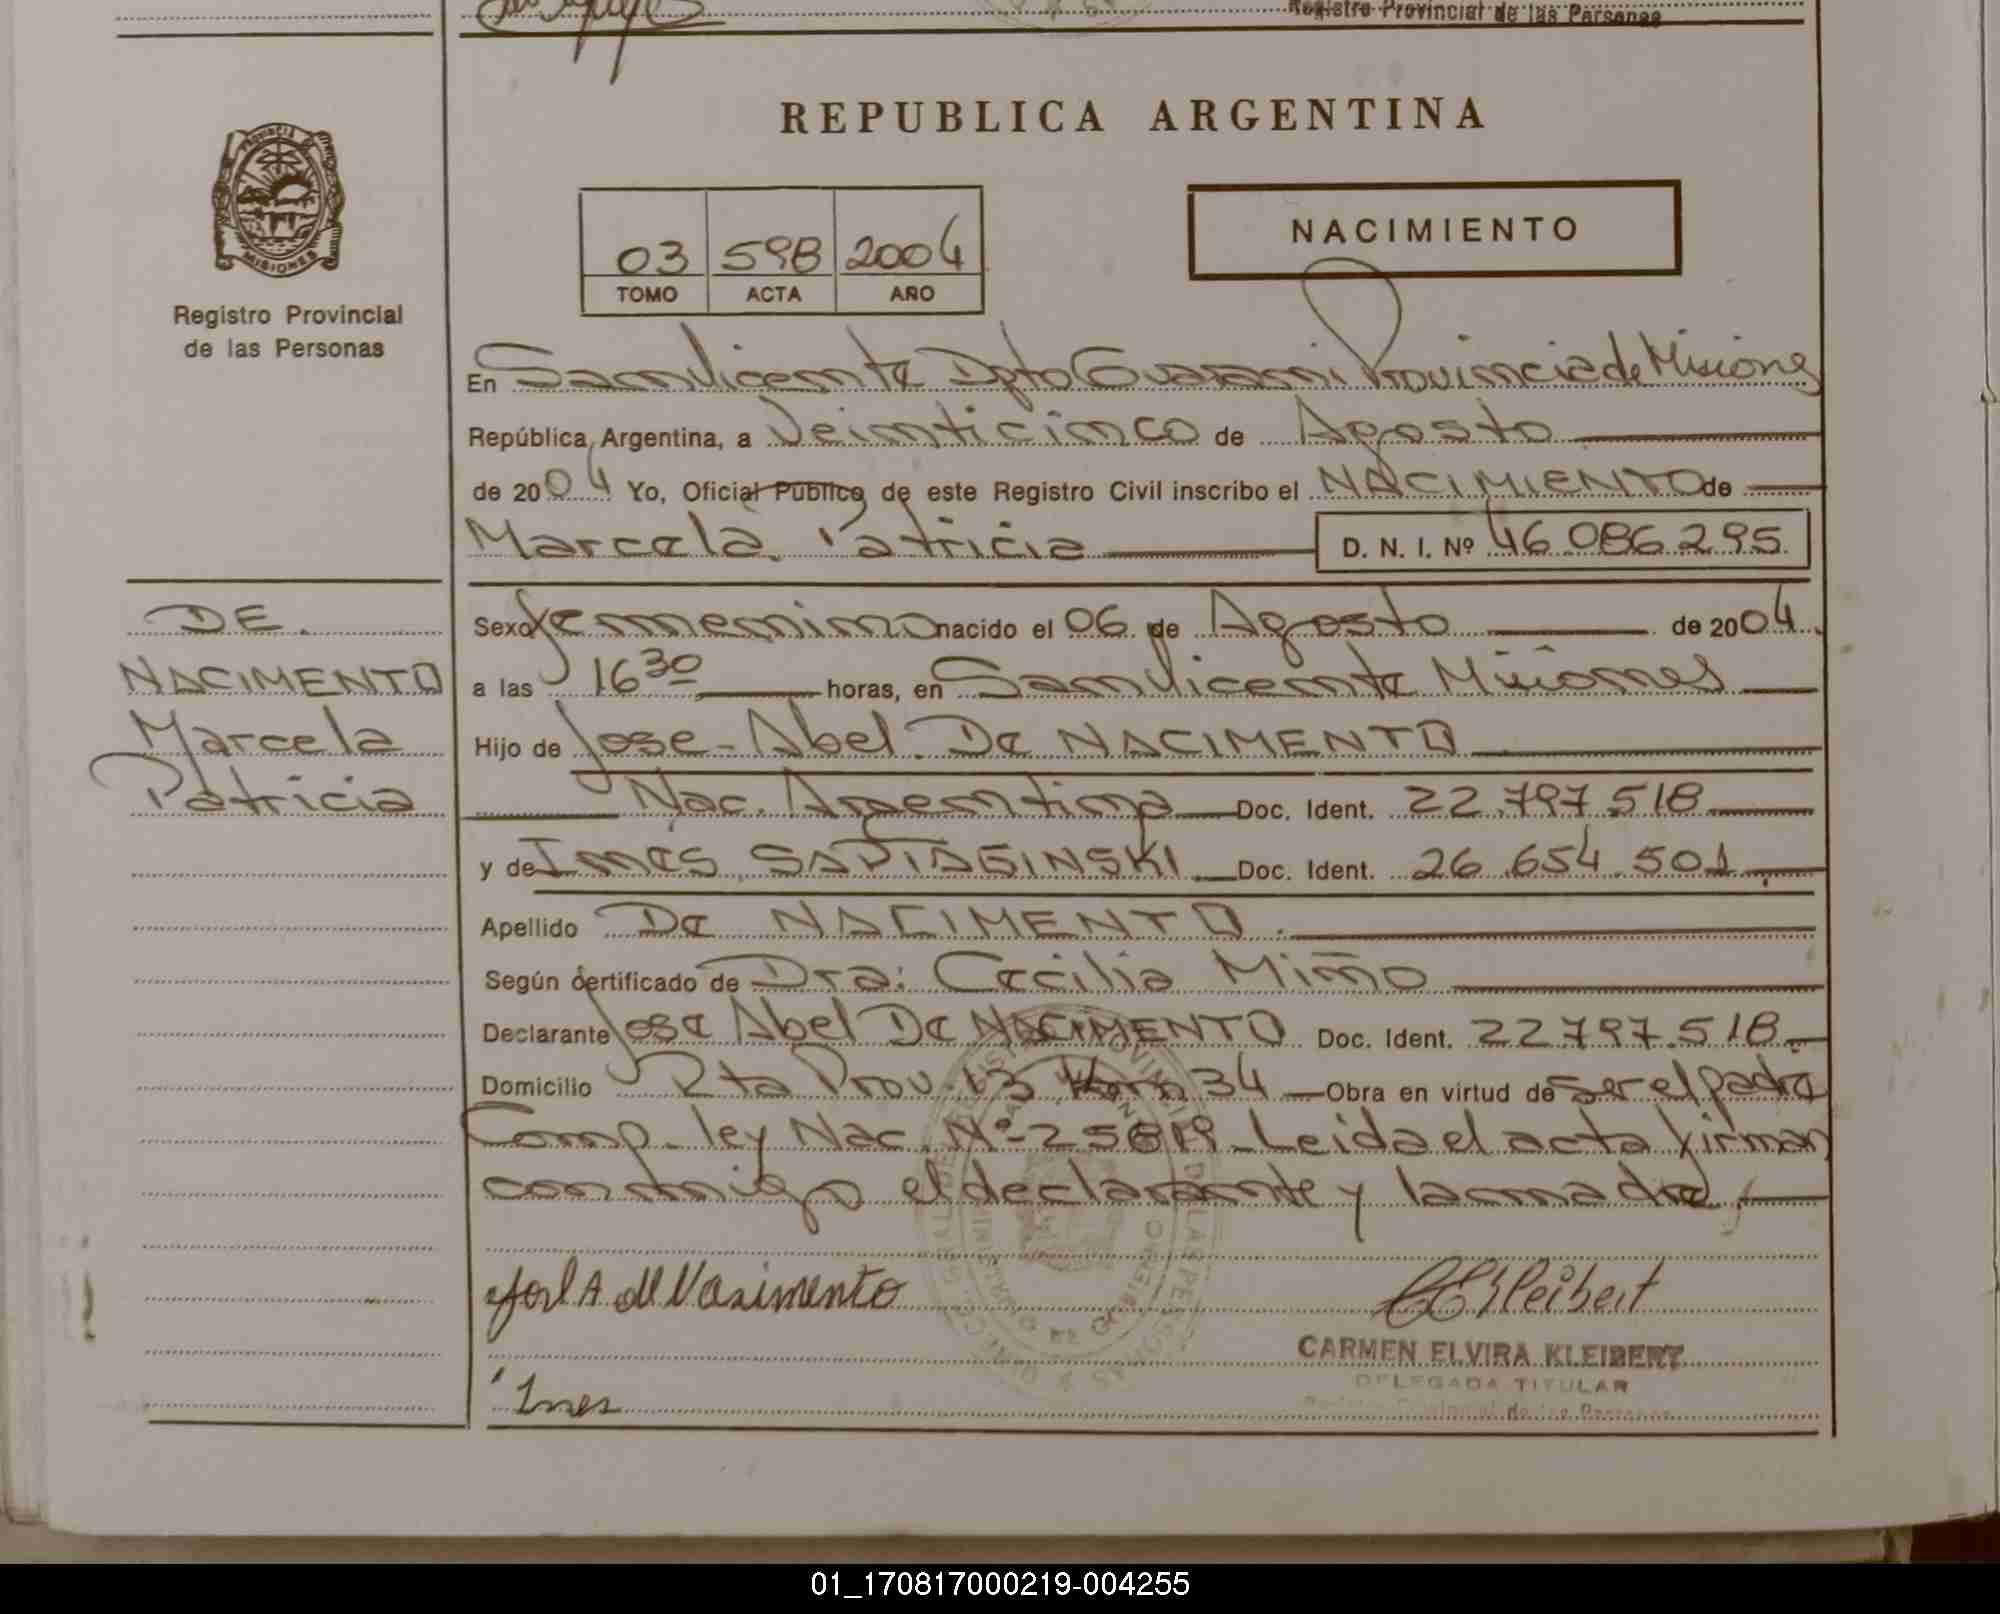 Registro Provincial de las Personas
REPUBLICA ARGENTINA
PROVINCIA
MISIONES
Registro Provincial
de las Personas
03 598 2004
TOMO ACTA AÑO
NACIMIENTO
En San Vicente Dpto Guarani Provincia de Misiones
República Argentina, a Veinticinco de Agosto
de 2004 Yo, Oficial Público de este Registro Civil inscribo el NACIMIENTO de
Marcela Patricia D. N. I. Nº 46.086.295
DE
NACIMENTO
Marcela
Patricia
Sexo femenino nacido el 06 de Agosto de 2004
a las 16 30 horas, en San Vicente Misiones
Hijo de Jose Abel De NACIMENTO
Nac. Argentina Doc. Ident. 22.797.518
y de Ines SAPIAGINSKI Doc. Ident. 26.654.501
Apellido De NACIMENTO
Según certificado de Dra: Cecilia Miño
Declarante Jose Abel De NACIMENTO Doc. Ident. 22.797.518
Domicilio Rta Prov. 13 Km 34 Obra en virtud de Ser el padre
Comp. ley Nac. Nº Leida el acta firman
conmigo el declarante y la madre
José A de Nasimento
Kleibert
CARMEN ELVIRA KLEIBERT
DELEGADA TITULAR
Registro Provincial de las Personas
Ines
01_170817000219-004255